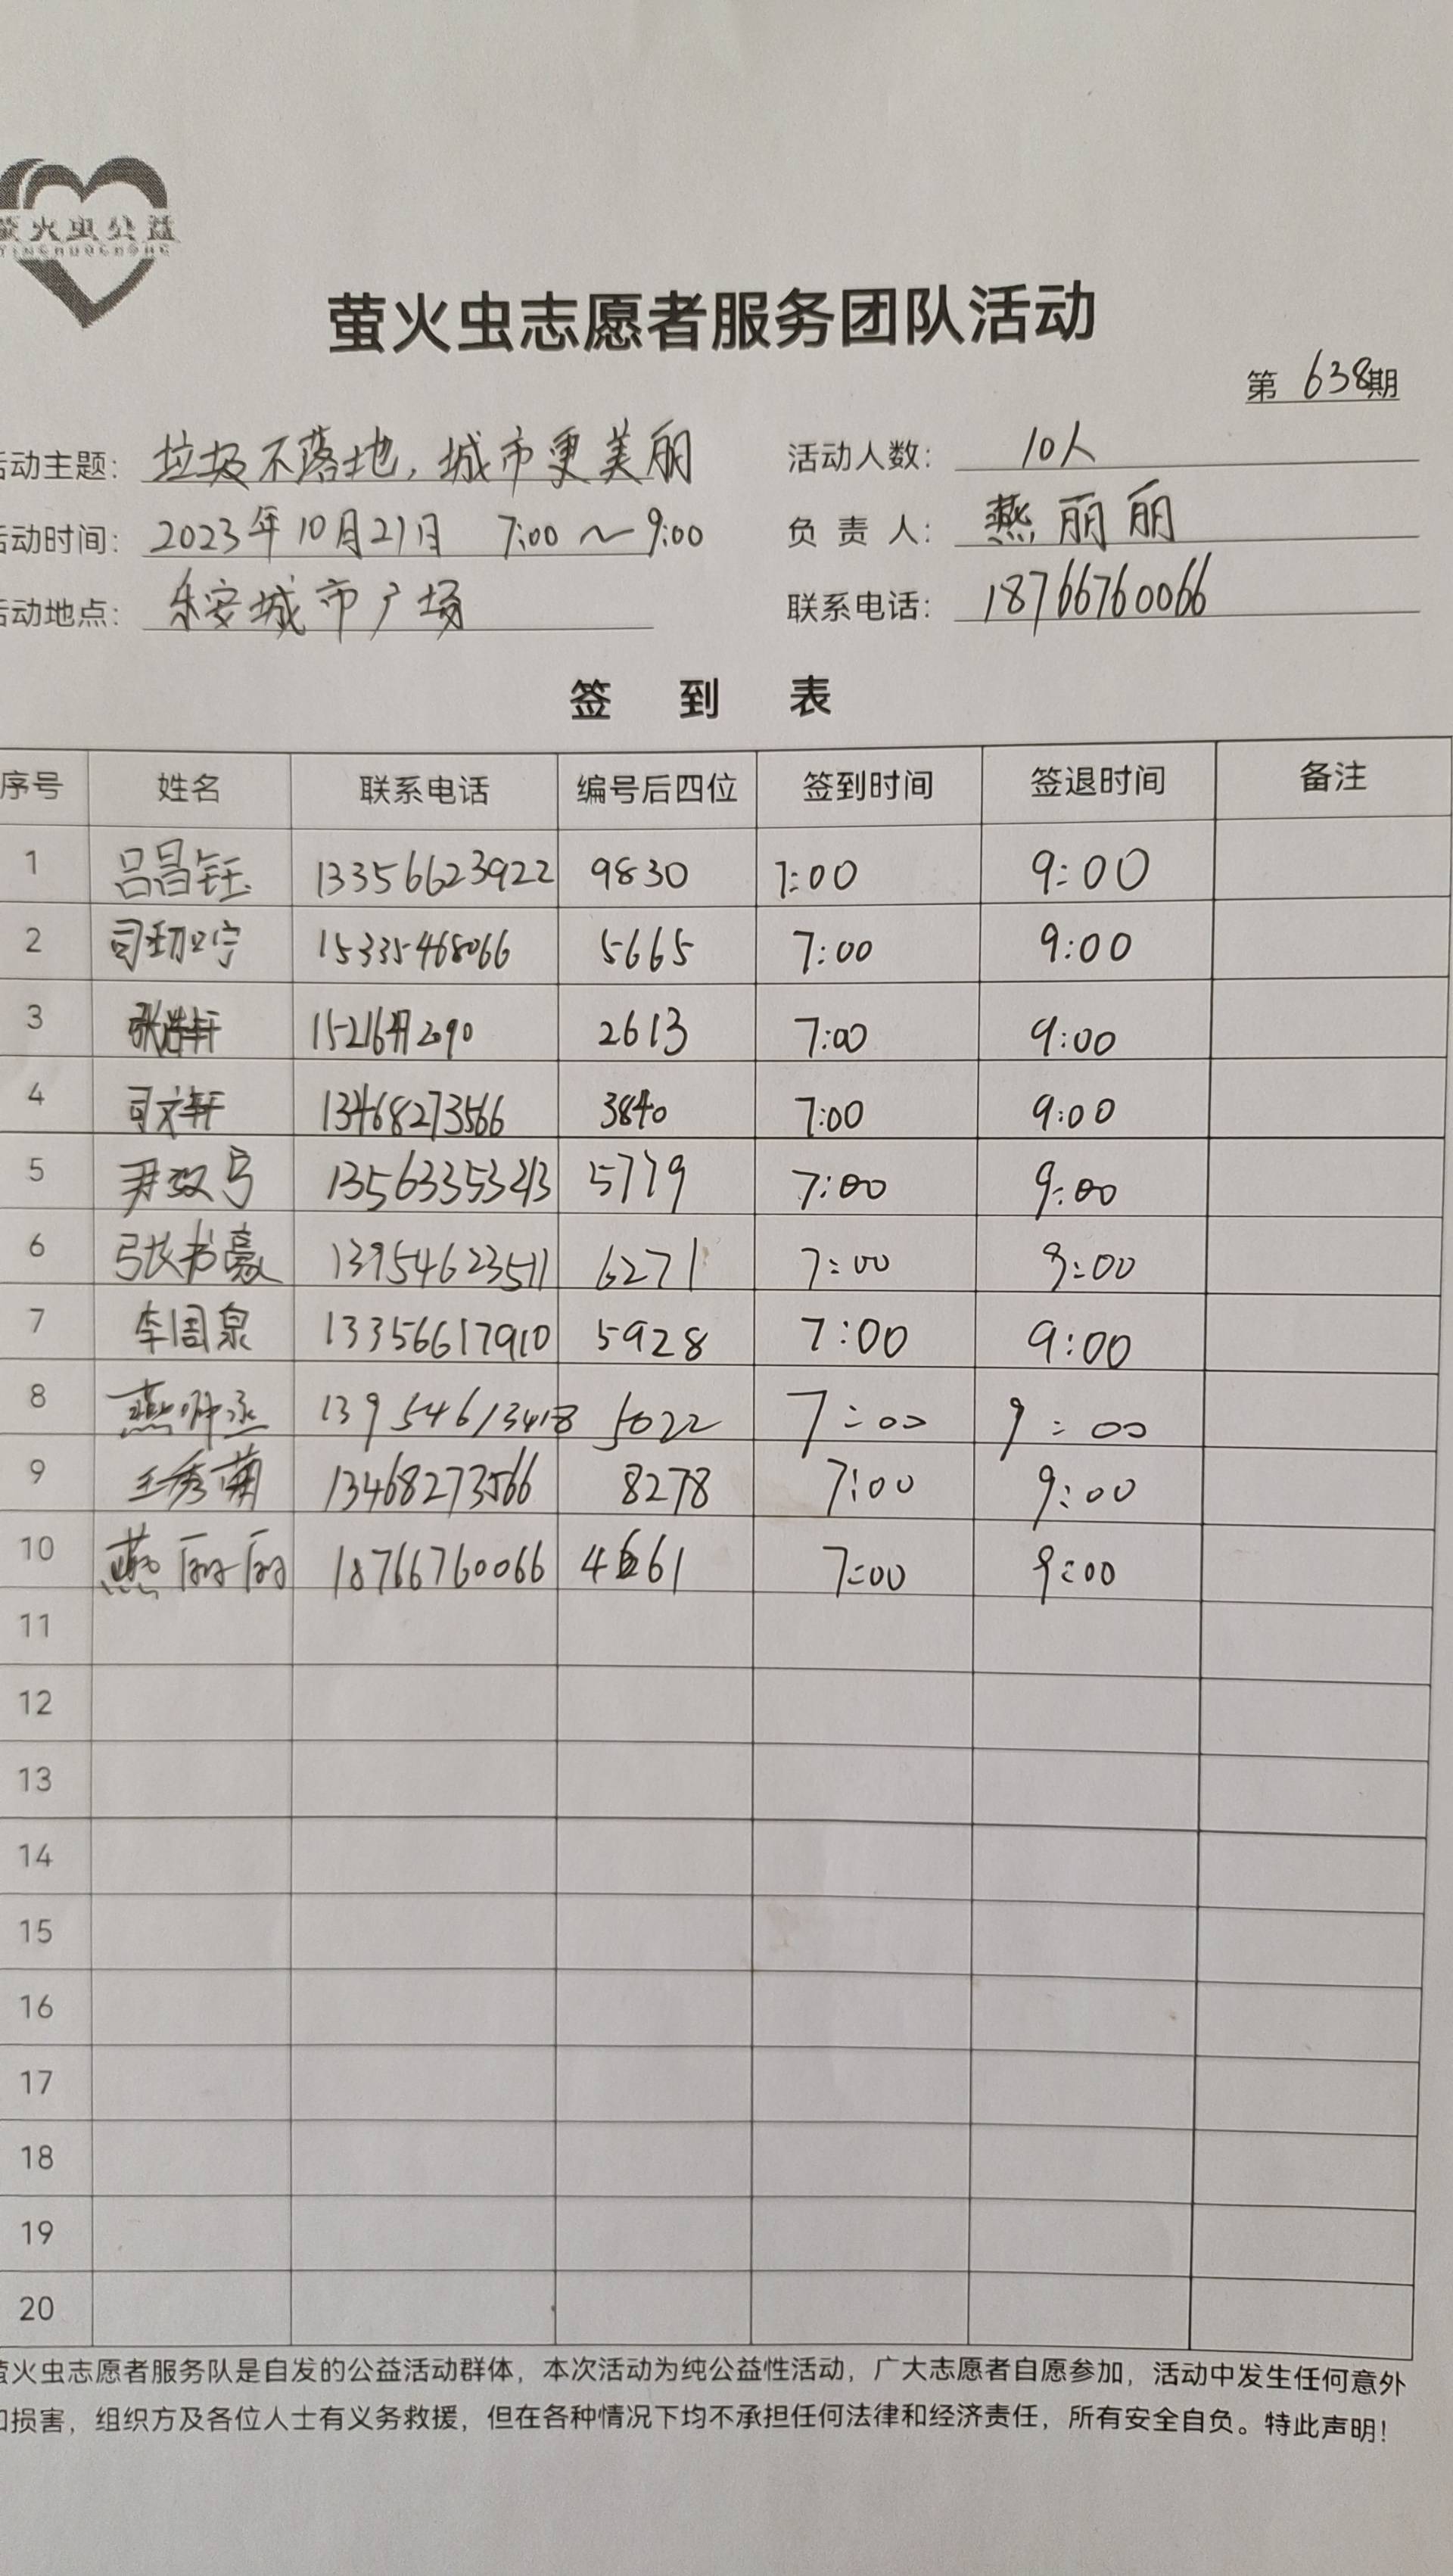 萤火虫公益
YINGHUOCHONG
萤火虫志愿者服务团队活动
第 638期
活动主题: 垃圾不落地,城市更美丽 活动人数: 10人
活动时间: 2023年10月21日 7:00~9:00 负责人: 燕丽丽
活动地点: 乐安城市广场 联系电话: 18766760066
签到表
序号 姓名 联系电话 编号后四位 签到时间 签退时间 备注
1 吕昌钰 13356623922 9830 7:00 9:00
2 15335468066 5665 7:00 9:00
3 张浩轩 2613 7:00 9:00
4 司文轩 13468273566 3840 7:00 9:00
5 5779 7:00 9:00
6 张书豪 13954623511 6271 7:00 9:00
7 李周泉 13356617910 5928 7:00 9:00
8 5022 7:00 9:00
9 王秀菊 13468273566 8278 7:00 9:00
10 燕丽丽 18766760066 4661 7:00 9:00
11
12
13
14
15
16
17
18
19
20
萤火虫志愿者服务队是自发的公益活动群体，本次活动为纯公益性活动，广大志愿者自愿参加，活动中发生任何意外
和损害，组织方及各位人士有义务救援，但在各种情况下均不承担任何法律和经济责任，所有安全自负。特此声明!